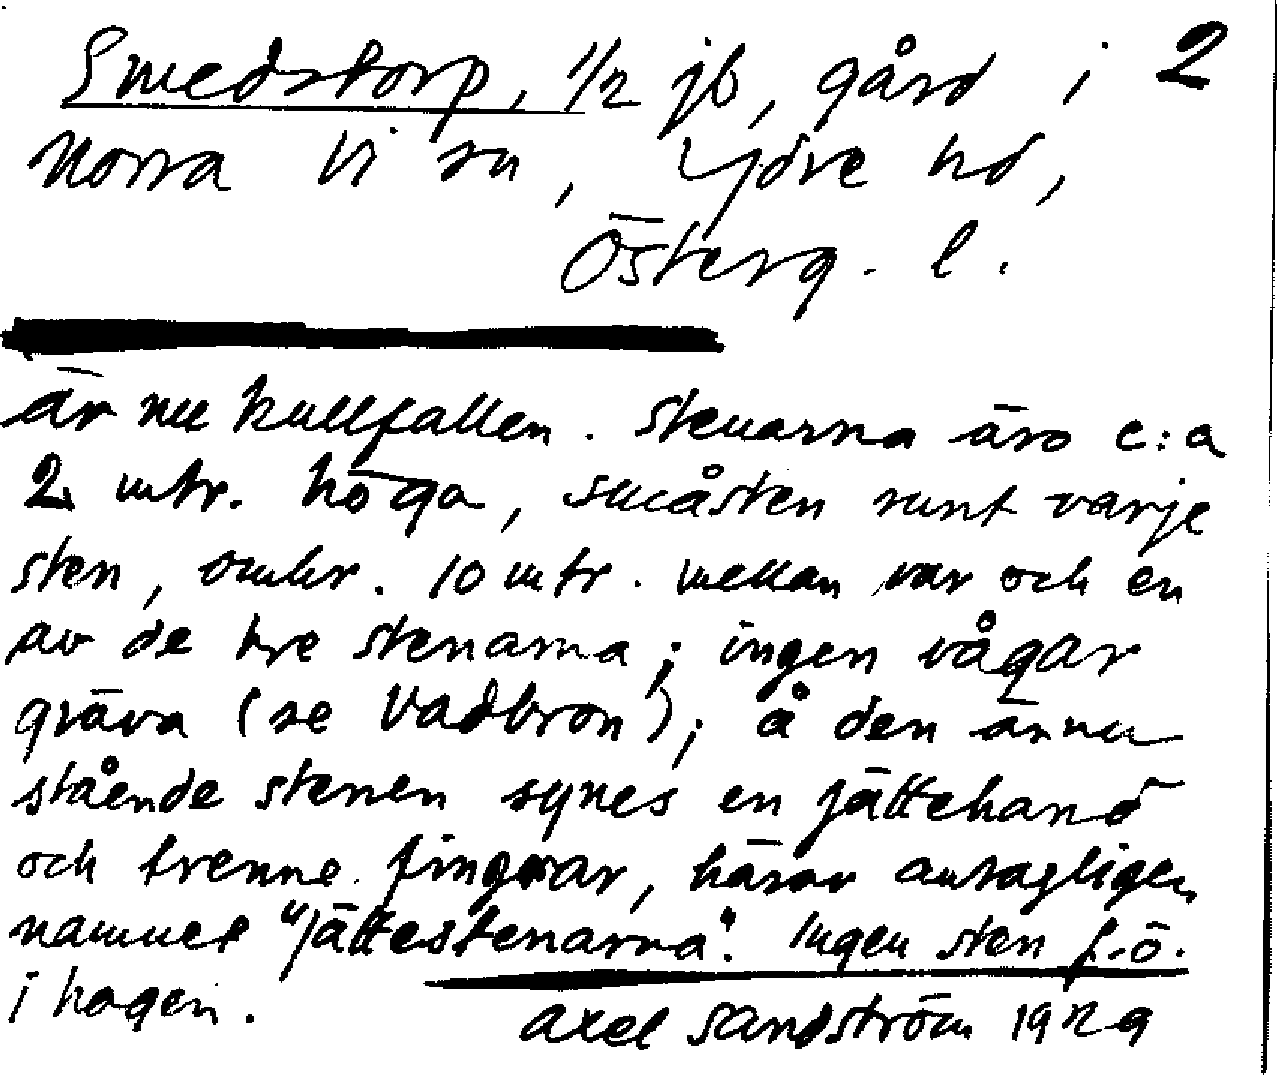 Smedstorp, 1/2 jb, gård i 2
Norra Vi sn, Ydre hd,
Österg. l.
är nu kullfallen. Stenarna äro c:a
2 mtr. höga, småsten runt varje
sten, omkr. 10 mtr. mellan var och en
av de tre stenarna; ingen vågar
gräva (se Vadbron); å den ännu
stående stenen synes en jättehand
och trenne fingrar, härav antagligen
namnet "Jättestenarna". Ingen sten f.ö.
i hagen.
Axel Sandström 1929